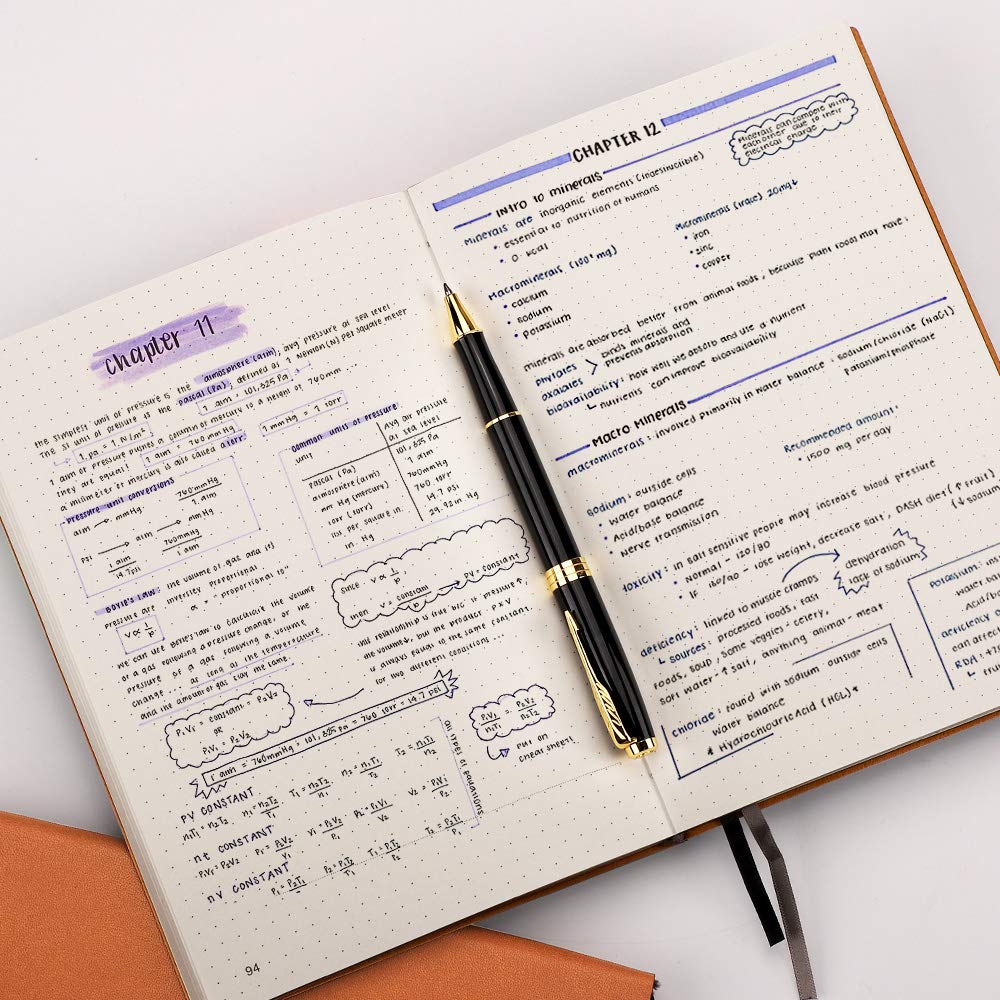 chapter 11
the simplest unit of pressure is the atmosphere (atm), avg pressure at sea level
The SI unit of pressure is the pascal (Pa), defined as 1 Newton (N) per square meter
1 Pa = 1 N/m²
1 atm = 101,325 Pa
1 atm of pressure pushes a column of mercury to a height of 760mm ...
they are equal! 1 atm = 760 mmHg
1 mmHg = 1 torr
a millimeter of mercury is also called a torr
pressure unit conversions
atm → mmHg 760mmHg
1 atm
psi → atm → mmHg
1 atm 760mmHg
14.7psi 1 atm
common units of pressure
unit
avg air pressure
at sea level
pascal (Pa) 101,325 Pa
atmosphere (atm) 1 atm
mm Hg (mercury) 760mmHg
torr (torr) 760 torr
lbs per square in. 14.7 psi
in. Hg 29.92 in Hg
BOYLE'S LAW: the volume of gas and its
pressure are inversely proportional
α = "proportional to"
V α 1/P
since V α 1/P
then V = constant/P → PV = constant
we can use Boyle's law to calculate the volume
of a gas following a pressure change, or the
pressure of a gas following a volume
change ... as long as the temperature
and the amount of gas stay the same.
this relationship is the b/c if pressure ↑,
the volume ↓, but the product P x V
is always equal to the same constant.
for two different conditions ...
P₁V₁ = constant = P₂V₂
OR
P₁V₁ = P₂V₂
1 atm = 760mmHg = 101,325 Pa = 760 torr = 14.7 psi
P₁V₁/n₁T₁ = P₂V₂/n₂T₂
put on
cheat sheet!
PV CONSTANT
n₁T₁ = n₂T₂ n₁ = n₂T₂/T₁ T₁ = n₂T₂/n₁ n₂ = n₁T₁/T₂ T₂ = n₁T₁/n₂
nt CONSTANT
P₁V₁ = P₂V₂ P₁ = P₂V₂/V₁ V₁ = P₂V₂/P₁ P₂ = P₁V₁/V₂ V₂ = P₁V₁/P₂
nv CONSTANT
P₁ = P₂T₁ P₂ = P₁T₂/T₁ T₁ = P₁T₂/P₂ T₂ = P₂T₁/P₁
all types of equations
94
CHAPTER 12
Minerals can compete with
each other due to their
electrical charge
Intro to minerals
Minerals are inorganic elements (indestructible)
• essential to nutrition of humans
• 0 kcal
Macrominerals (100+ mg)
• calcium
• sodium
• potassium
Microminerals (trace) 20mg↓
• iron
• zinc
• copper
minerals are absorbed better from animal foods, because plant foods may have:
phytates
oxalates
binds minerals and
prevents absorption
bioavailability: how well we absorb and use a nutrient
nutrients can improve bioavailability
Macro Minerals
macrominerals: involved primarily in water balance: sodium/chloride (NaCl)
Potassium/phosphate
Sodium: outside cells
• Water balance
• Acid/base balance
• Nerve transmission
Recommended amount:
• 1500 mg per day
toxicity: in salt sensitive people may increase blood pressure
• Normal - 120/80
• If 160/90 - lose weight, decrease salt, DASH diet (↑ fruit)
(↓ sodium)
deficiency: linked to muscle cramps
dehydration
lack of sodium
sources: processed foods, fast
foods, soup, some veggies: celery,
soft water - ↑ salt, anything animal - meat
chloride: found with sodium outside cells
Water balance
* Hydrochloric Acid (HCL)*
Potassium:
water ba
Acid/ba
deficiency
can affec
RDA: 47